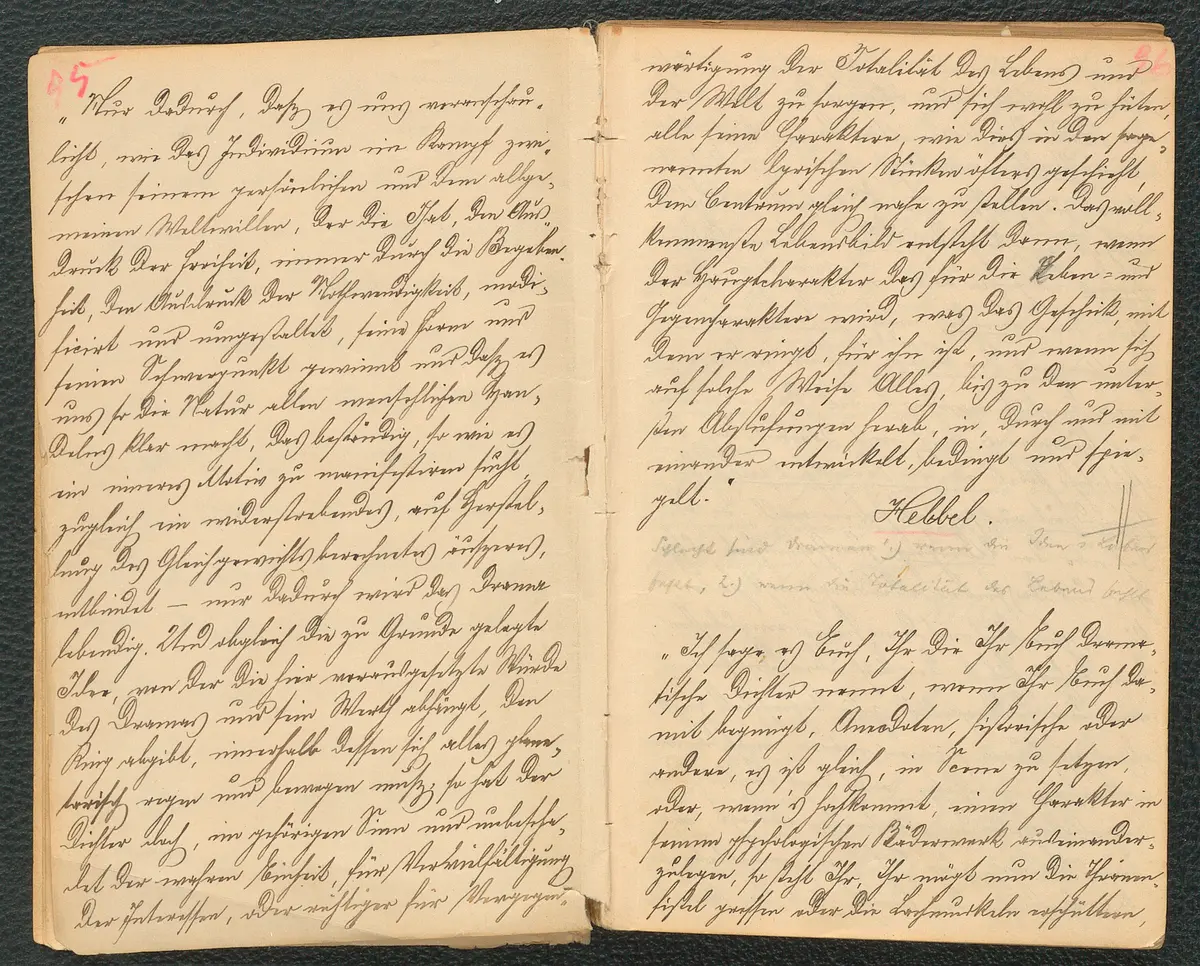 95
„Nur dadurch, dasz es uns veranschau-
licht, wie das Individuum im Kampf zwi-
schen seinem persönlichen und dem allge-
meinen Weltwillen, der die That, den Aus-
druck der Freiheit, immer durch die Begeben-
heit, den Ausdruck der Nothwendigkeit, modi-
ficirt und umgestaltet, seine Form und
seinen Schwerpunkt gewinnt und dasz es
uns so die Natur allen menschlichen Han-
delns klar macht, das beständig, so wie es
ein inneres Motiv zu manifestiren sucht,
zugleich ein widerstrebendes, auf Herstel-
lung des Gleichgewichts berechnetes äuszeres,
entbindet — nur dadurch wird das Drama
lebendig. Und obgleich die zu Grunde gelegte
Idee, von der die hier vorausgesetzte Würde
des Dramas und sein Werth abhängt, den
Ring abgibt, innerhalb dessen sich alles plane-
tarisch regen und bewegen musz; so hat der
Dichter doch, im gehörigen Sinn und unbescha-
det der wahren Einheit, für Vervielfältigung
der Interessen, oder richtiger für Vergegen-
96
wärtigung der Totalität des Lebens und
der Welt zu sorgen, und sich wohl zu hüten,
alle seine Charaktere, wie dies in den soge-
nannten lyrischen Stücken öfters geschieht,
dem Centrum gleich nahe zu stellen. Das voll-
kommenste Lebensbild entsteht dann, wenn
der Hauptcharakter das für die Neben- und
Gegencharaktere wird, was das Geschick, mit
dem er ringt, für ihn ist, und wenn sich
auf solche Weise Alles, bis zu den unter-
sten Abstufungen herab, in, durch und mit
einander entwickelt, bedingt und spie-
gelt.“
Hebbel.
Schlecht sind Dramen 1.) wenn die Idee
fehlt, 2.) wenn die Totalität des Lebens fehlt
„Ich sage es Euch, Ihr die Ihr Euch drama-
tische Dichter nennt, wenn Ihr Euch da-
mit begnügt, Anecdoten, historische oder
andere, es ist gleich, in Scene zu setzen,
oder, wenn's hochkommt, einen Charakter in
seinem psychologischen Räderwerk auseinander-
zulegen, so steht Ihr, Ihr mögt nun die Thränen-
fistel pressen oder die Lachmuskeln erschüttern,